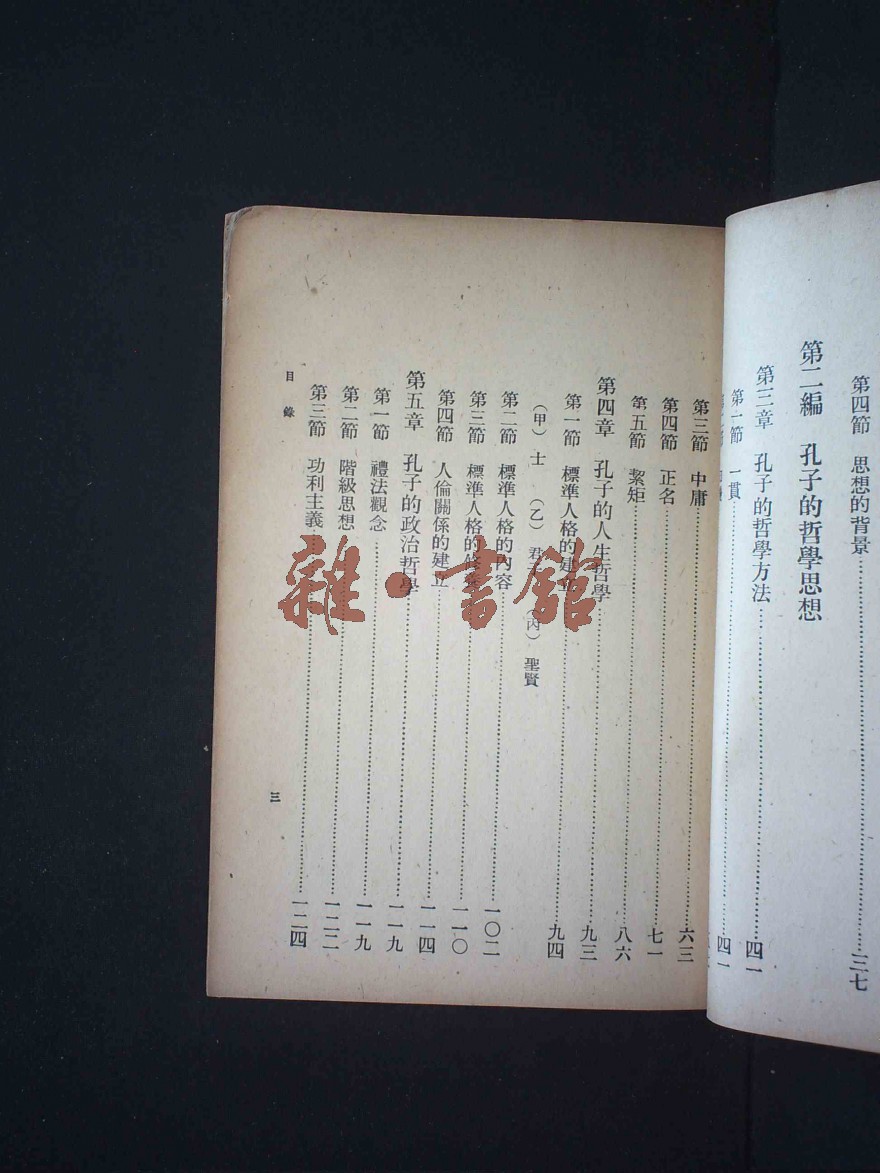 第四節 思想的背景……三七
第二編 孔子的哲學思想
第三章 孔子的哲學方法……四一
第一節 一貫……四一
第三節 中庸……六三
第四節 正名……七一
第五節 絜矩……八六
第四章 孔子的人生哲學……九三
第一節 標準人格的建立……九四
(甲)士 (乙)君子 (丙)聖賢
第二節 標準人格的內容……一〇二
第三節 標準人格的……一一〇
第四節 人倫關係的建立……一一四
第五章 孔子的政治哲學……一一九
第一節 禮法觀念……一一九
第二節 階級思想……一二二
第三節 功利主義……一二四
目錄
三
雜·書館